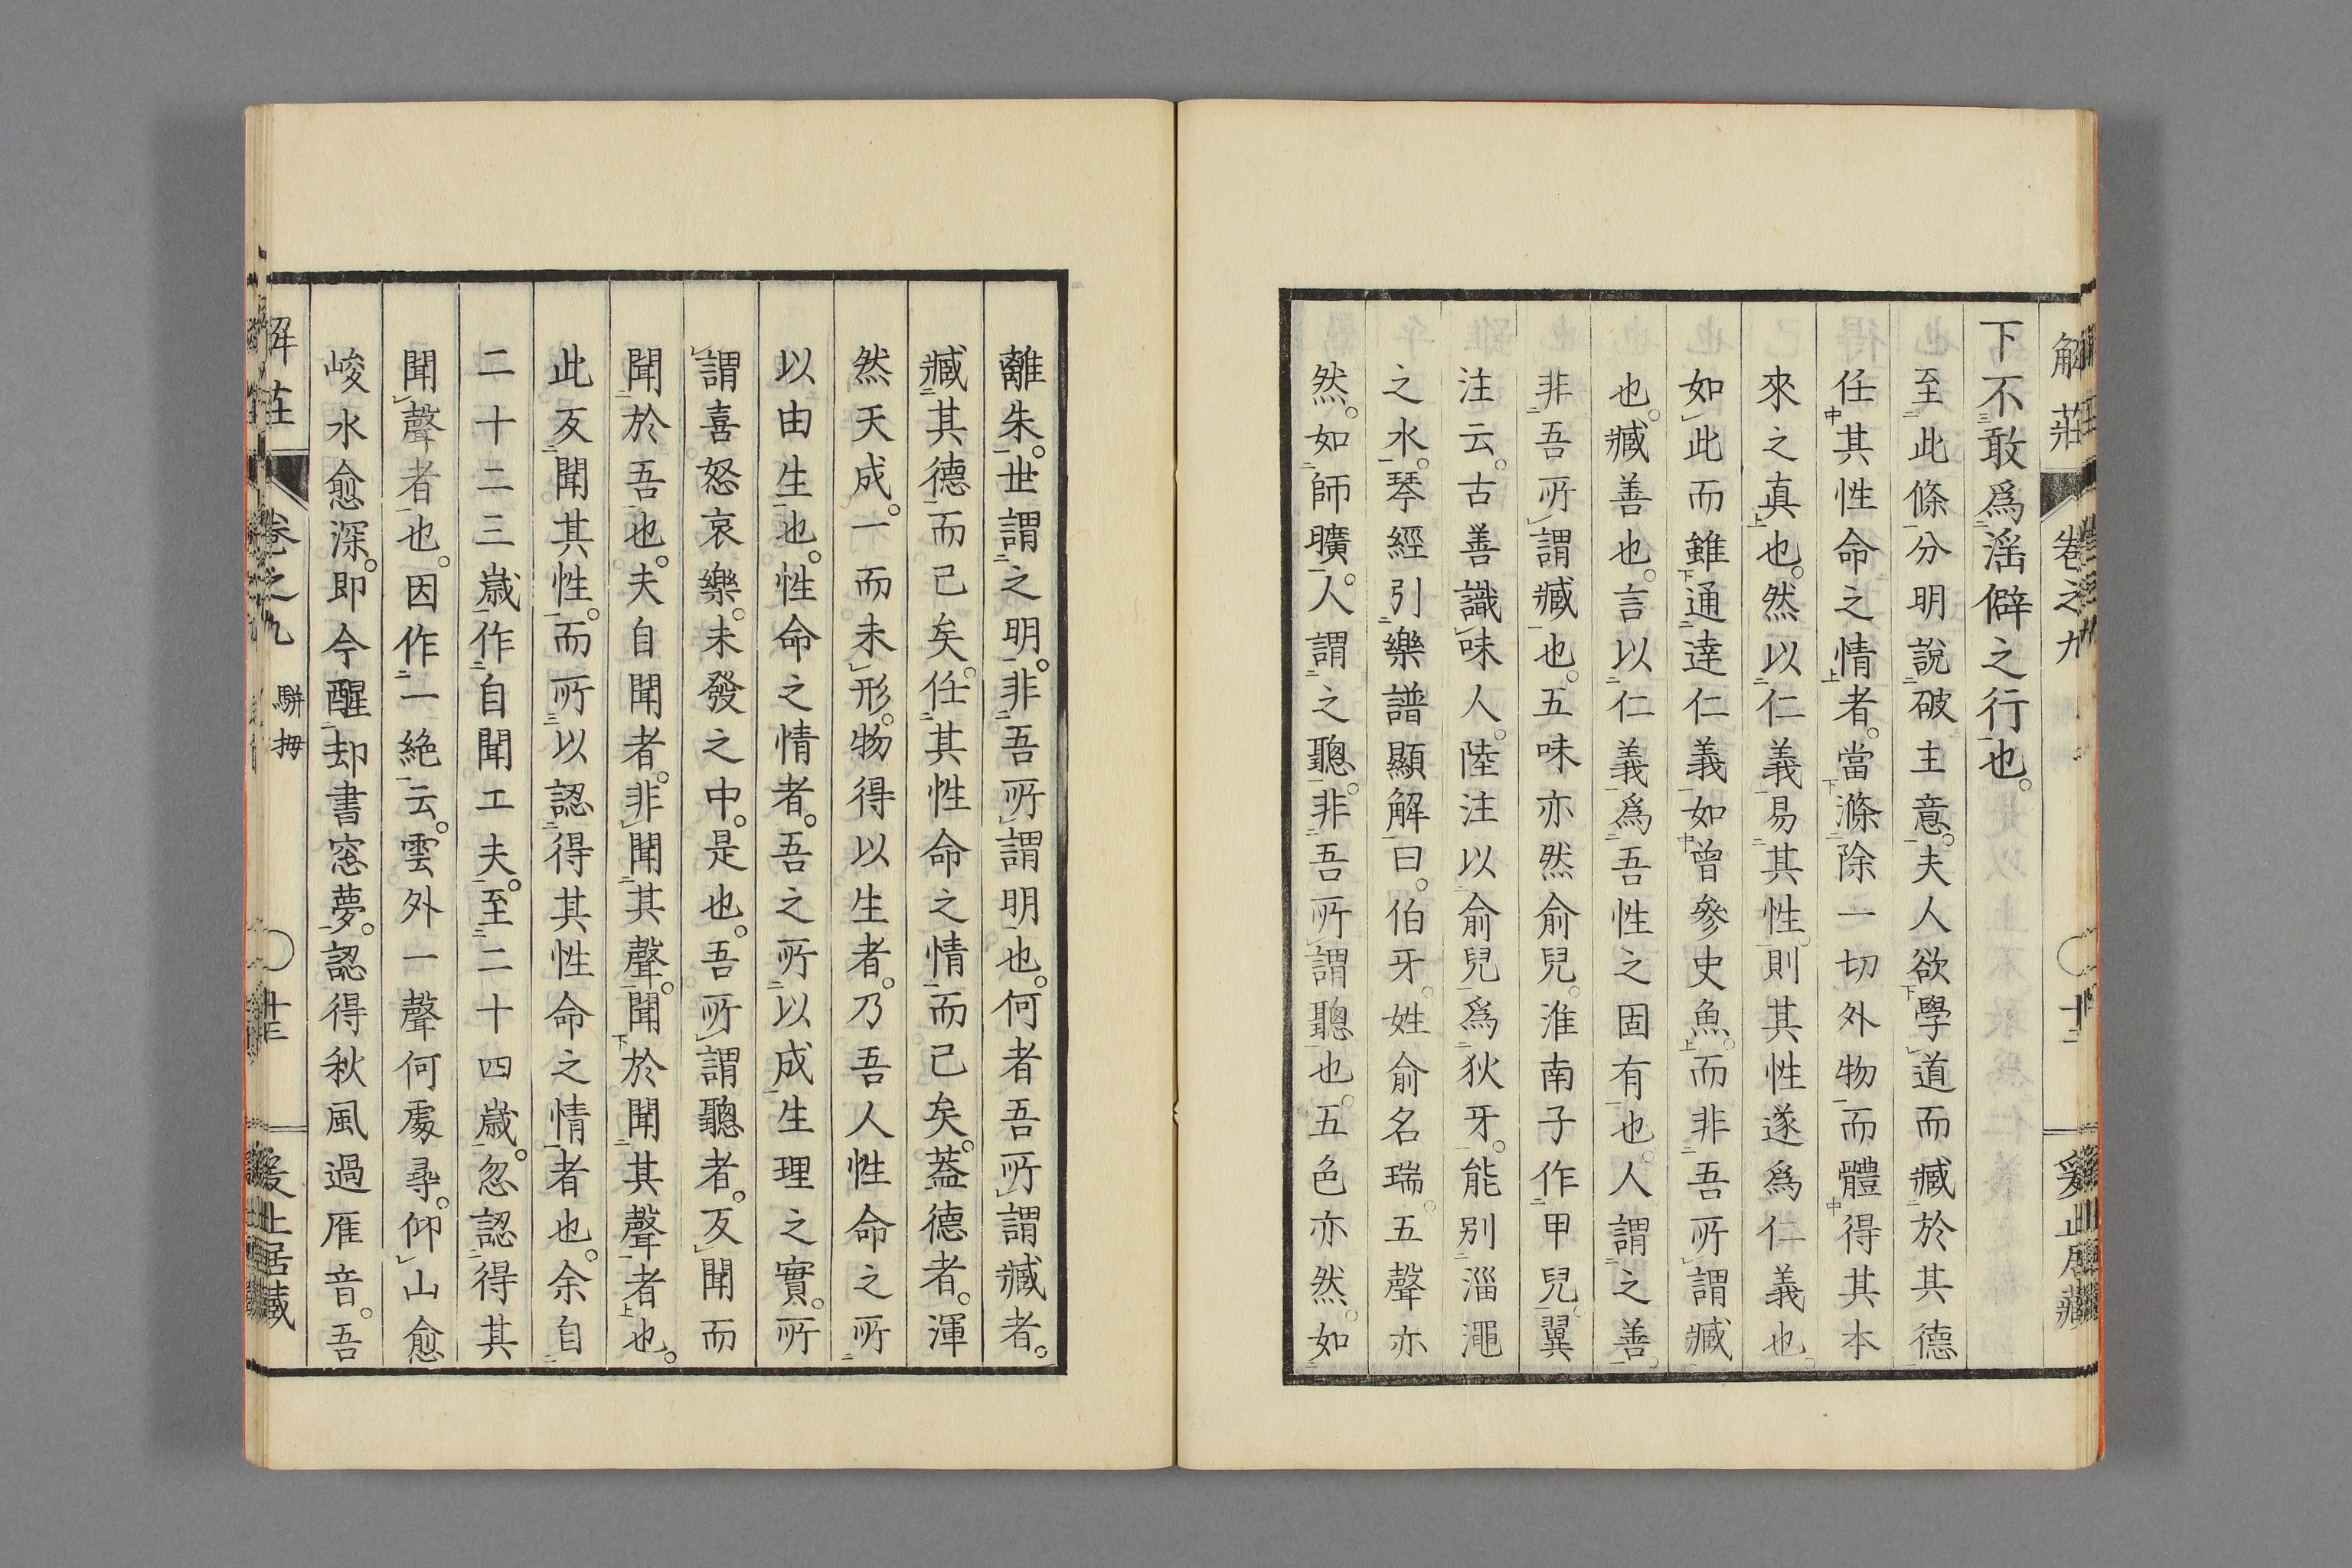 解莊 卷之九 十二 爰止居藏
下不敢爲淫僻之行也。
至此條分明說破主意。夫人欲學道而臧於其德
任其性命之情者。當滌除一切外物而體得其本
來之真也。然以仁義易其性。則其性遂爲仁義也。
如此而雖通達仁義如曾參史魚。而非吾所謂臧
也。臧善也。言以仁義爲吾性之固有也。人謂之善。
非吾所謂臧也。五味亦然俞兒。淮南子作申兒。翼
注云。古善識味人。陸注以俞兒爲狄牙。能别淄澠
之水。琴經引樂譜顯解曰。伯牙。姓俞名瑞。五聲亦
然。如師曠。人謂之聰。非吾所謂聰也。五色亦然。如
離朱。世謂之明。非吾所謂明也。何者吾所謂臧者。
臧其德而已矣。任其性命之情而已矣。蓋德者。渾
然天成。一而未形。物得以生者。乃吾人性命之所
以由生也。性命之情者。吾之所以成生理之實。所
謂喜怒哀樂。未發之中。是也。吾所謂聽者。反聞而
聞於吾也。夫自聞者。非聞其聲。聞於聞其聲者也。
此反聞其性。而所以認得其性命之情者也。余自
二十二三歲作自聞工夫。至二十四歲。忽認得其
聞聲者也。因作一絶云。雲外一聲何處尋。仰山愈
峻水愈深。即今醒却書窓夢。認得秋風過雁音。吾
解莊 卷之九 駢拇 十三 爰止居藏